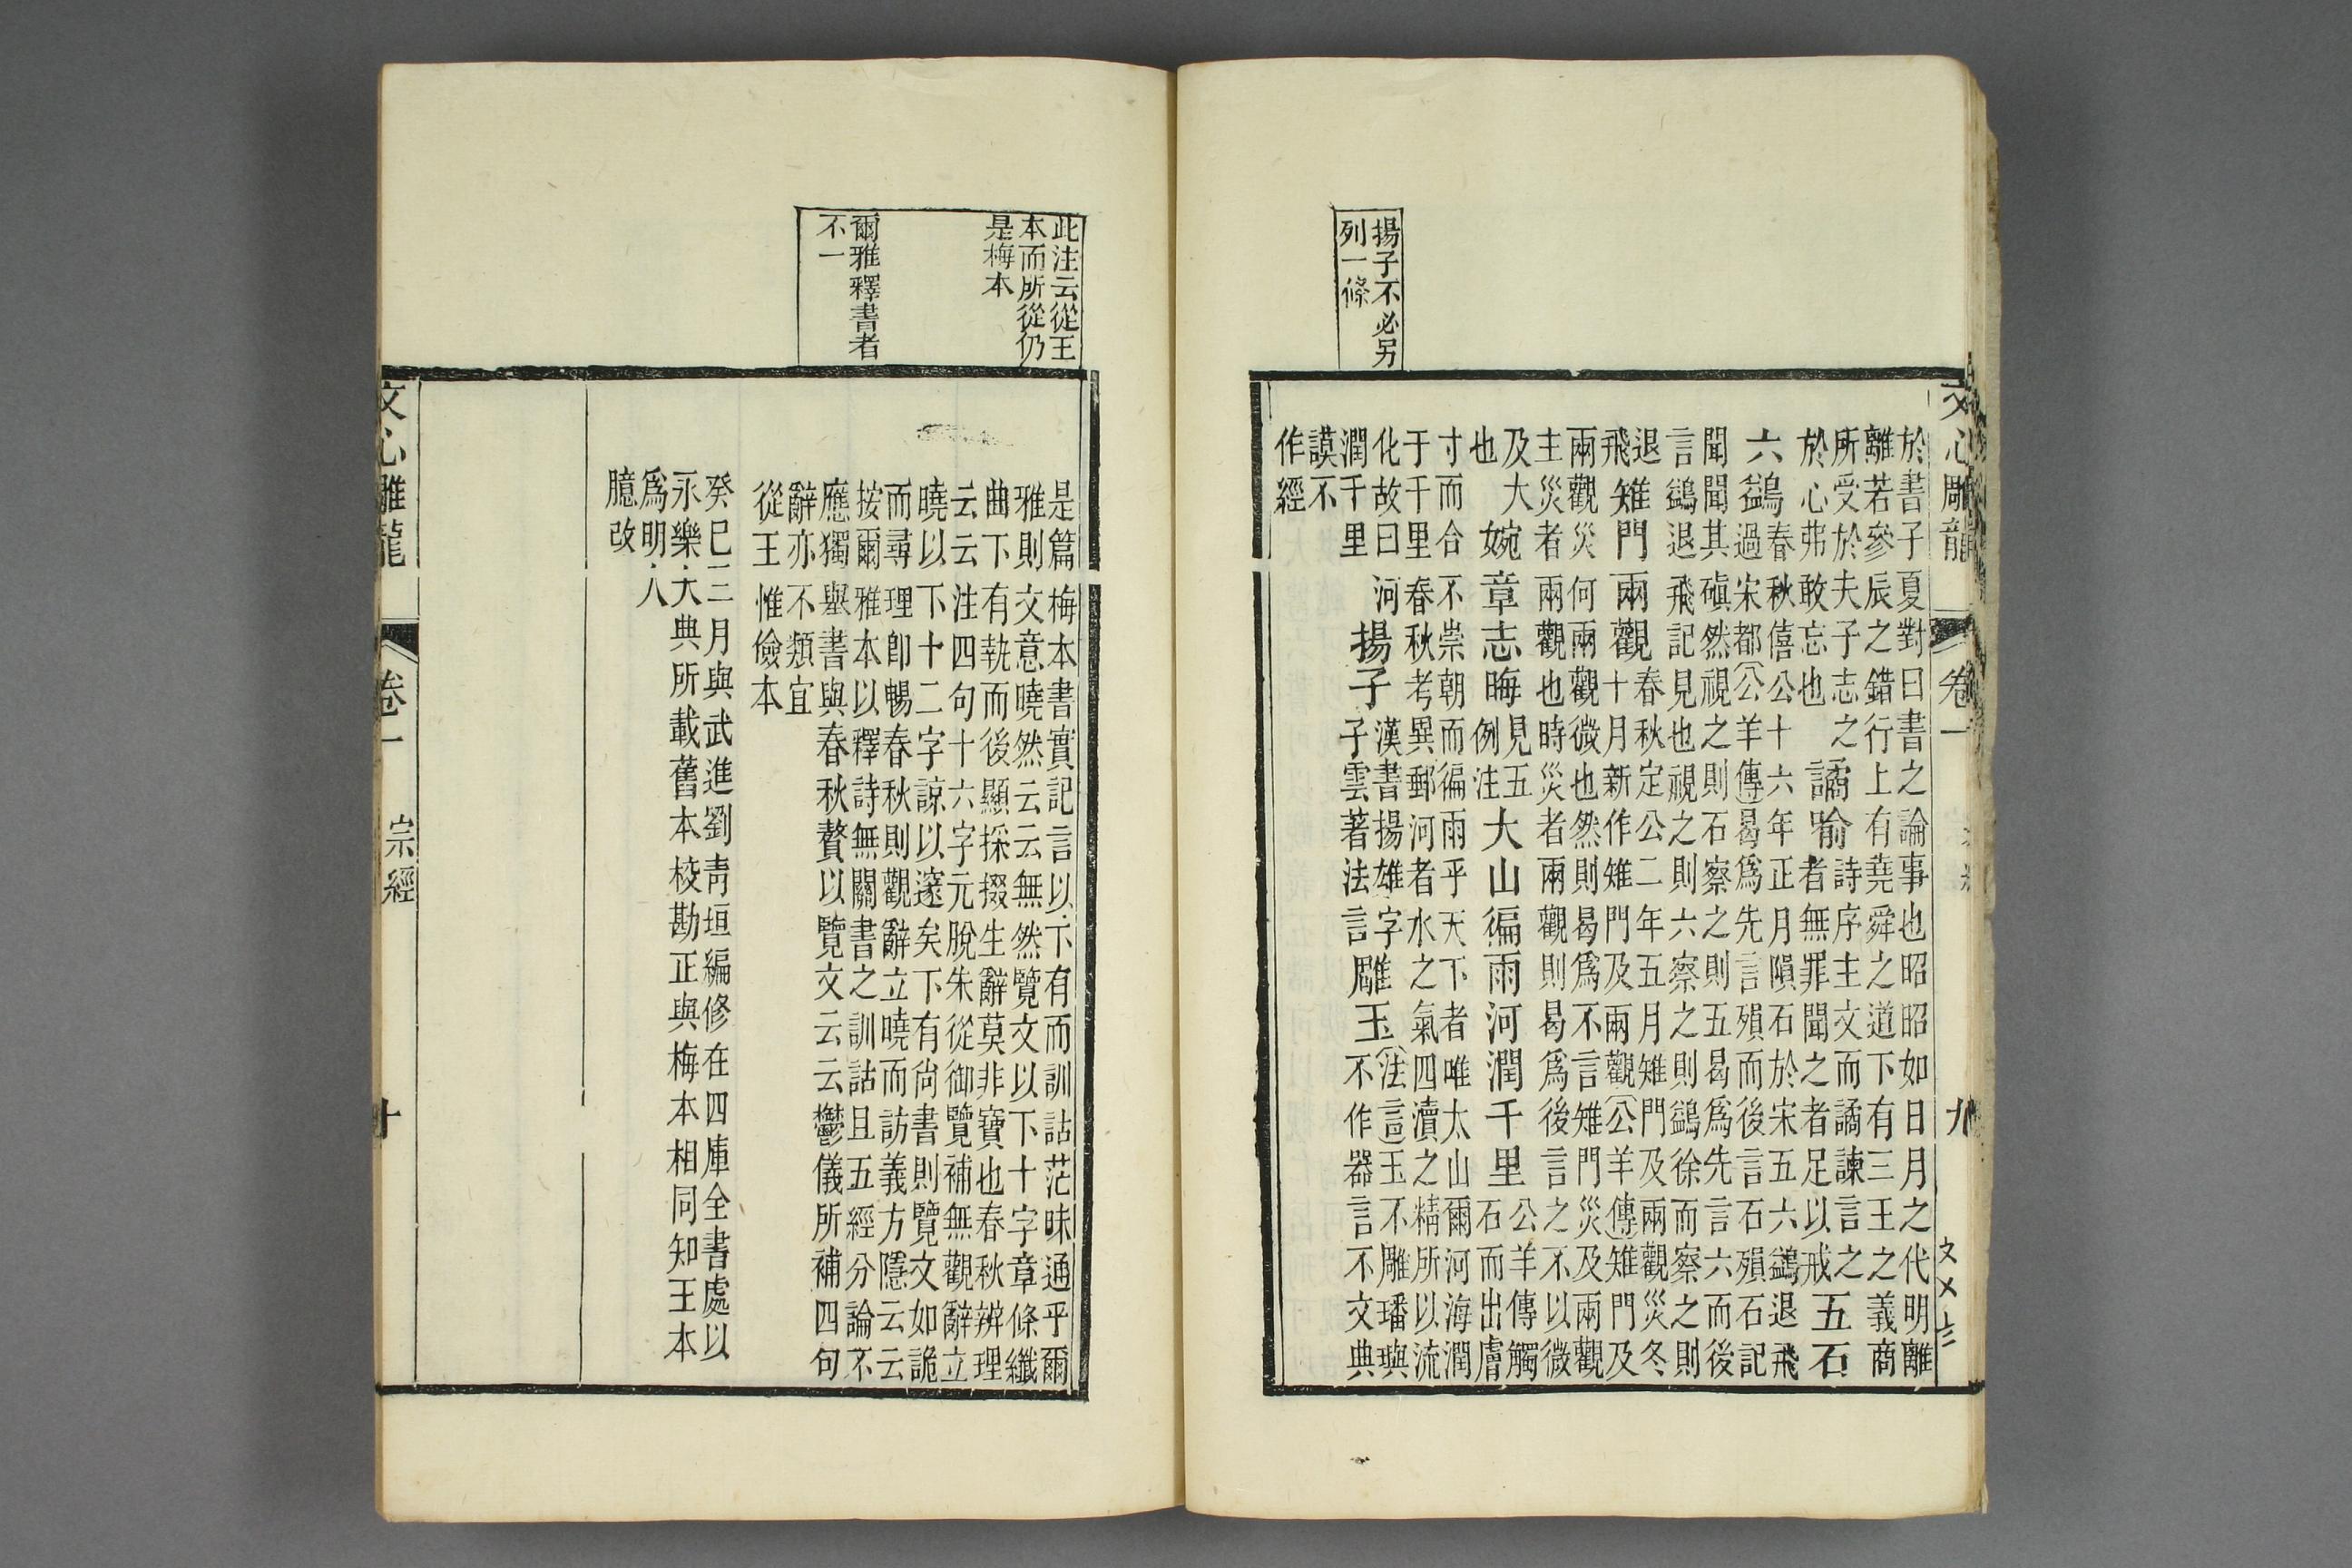 揚子不必另
列一條
文心雕龍 卷一 九
於書子夏對曰書之論事也昭昭如日月之代明離
離若參辰之錯行上有堯舜之道下有三王之義商
所受於夫子志之
於心弗敢忘也
譎喻
詩序主文而譎諫言之
者無罪聞之者足以戒
五石
六鷁
春秋僖公十六年正月隕石於宋五六鷁退飛
過宋都公羊傳曷爲先言殞而後言石殞石記
聞聞其磌然視之則石察之則五曷爲先言六而後
言鷁退飛記見也視之則六察之則鷁徐而察之則
退
飛
雉門兩觀
春秋定公二年五月雉門及兩觀災冬
十月新作雉門及兩觀公羊傳雉門及
兩觀災何兩觀微也然則曷爲不言雉門災及兩觀
主災者兩觀也時災者兩觀則曷爲後言之不以微
及大
也
婉章志晦
見五
例注
大山徧雨河潤千里
公羊傳觸
石而出膚
寸而合不崇朝而徧雨乎天下者唯太山爾河海潤
于千里春秋考異郵河者水之氣四瀆之精所以流
化故曰河
潤千里
揚子
漢書揚雄字
子雲著法言
雕玉
法言玉不雕璠璵
不作器言不文典
謨不
作經
此注云從王
本而所從仍
是梅本
爾雅釋書者
不一
是篇梅本書實記言以下有而訓詁茫昧通乎爾
雅則文意曉然云云無然覽文以下十字章條纖
曲下有執而後顯採掇生辭莫非寶也春秋辨理
云云注四句十六字元脫朱從御覽補無觀辭立
曉以下十二字諒以邃矣下有尚書則覽文如詭
而尋理卽暢春秋則觀辭立曉而訪義方隱云云
按爾雅本以釋詩無關書之訓詁且五經分論不
應獨舉書與春秋贅以覽文云云鬱儀所補四句
辭亦不類宜
從王惟儉本
癸巳三月與武進劉靑垣編修在四庫全書處以
永樂大典所載舊本校勘正與梅本相同知王本
爲明人
臆改
文心雕龍 卷一 宗經 十